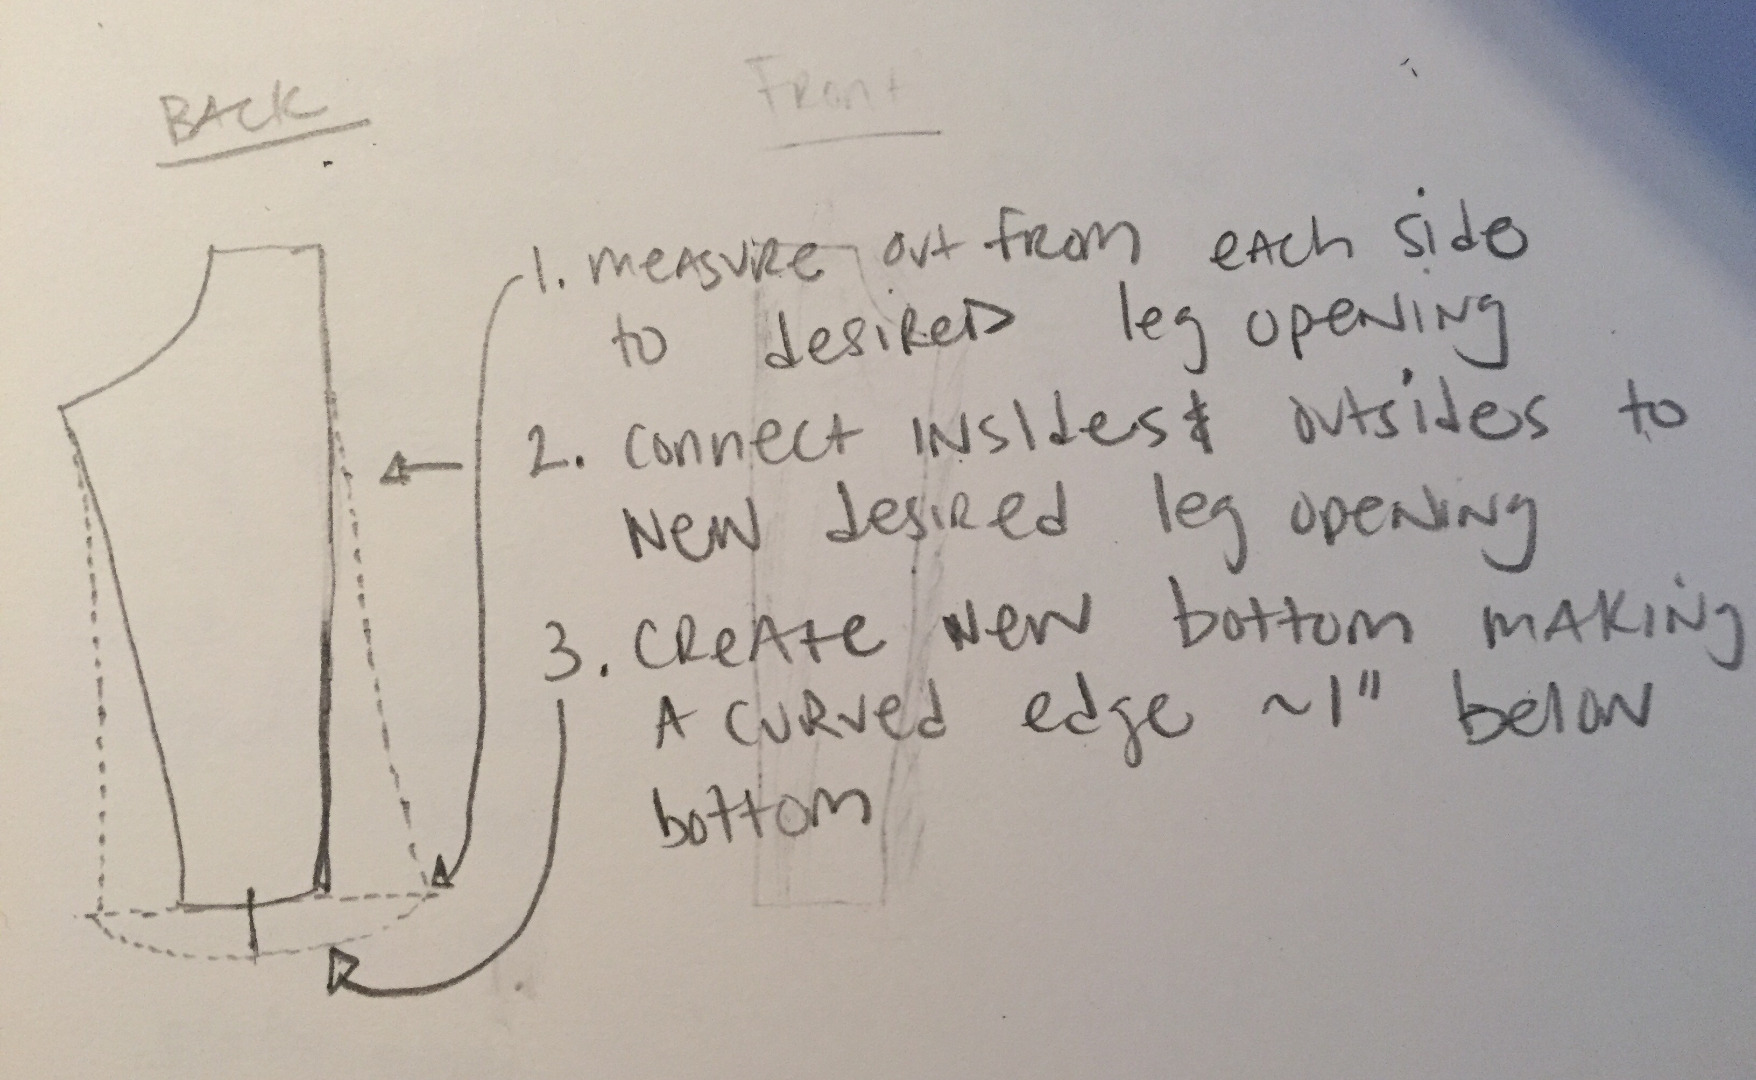 BACK
Front
1. measure out from each side
to desired leg opening
2. connect insides & outsides to
new desired leg opening
3. create new bottom making
a curved edge ~1" below
bottom